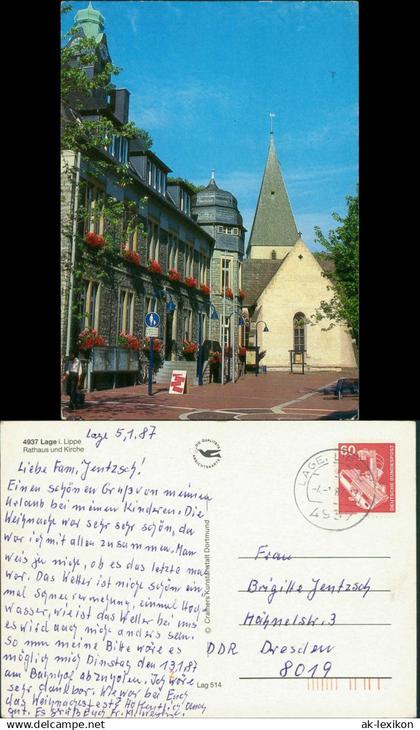 4937 Lage i. Lippe
Rathaus und Kirche
Lage 5,1.87
Liebe Fam, Jentzsch!
Einen schönen Gruß von meinen
Urlaub bei meinen Kindern. Die
Weihnacht war sehr sehr schön, da
war ich mit allen zusammen. Man
weis ja nicht, ob es das letzte mal
war. Das Wetter ist nicht schön ein
mal Schneeverwehung, einmal Hoch
wasser, wie ist das Wetter bei uns
es wird auch nicht anders sein.
So nun meine Bitte wäre es
möglich mich Dinstag den 13.1.87
am Bahnhof abzuholen. Ich wäre
sehr dankbar. Wie war bei Euch
das Weihnachtsfest? Hoffentlich auch
gut. Es grüßt Euch Fr.
© Cramers Kunstanstalt Dortmund
Lag 514
LAGE, LIPPE
4937
60
DEUTSCHE BUNDESPOST
Frau
Brigitte Jentzsch
Hähnelstr. 3
DDR Dresden
8019
© ak-lexikon.com
ak-lexikon.com